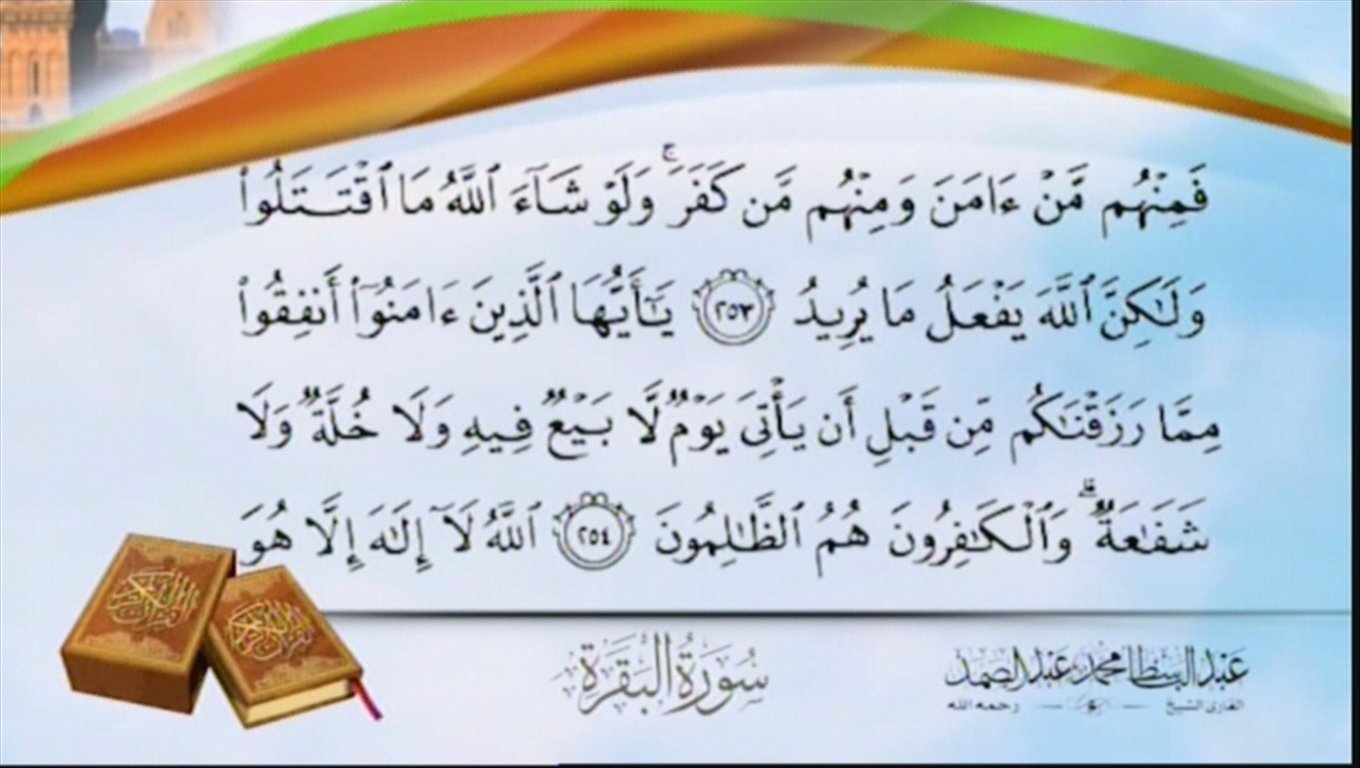 فَمِنْهُم مَّنْ ءَامَنَ وَمِنْهُم مَّن كَفَرَ ۚ وَلَوْ شَآءَ ٱللَّهُ مَا ٱقْتَتَلُوا۟
وَلَـٰكِنَّ ٱللَّهَ يَفْعَلُ مَا يُرِيدُ ٢٥٣ يَـٰٓأَيُّهَا ٱلَّذِينَ ءَامَنُوٓا۟ أَنفِقُوا۟
مِمَّا رَزَقْنَـٰكُم مِّن قَبْلِ أَن يَأْتِىَ يَوْمٌ لَّا بَيْعٌ فِيهِ وَلَا خُلَّةٌ وَلَا
شَفَـٰعَةٌ ۗ وَٱلْكَـٰفِرُونَ هُمُ ٱلظَّـٰلِمُونَ ٢٥٤ ٱللَّهُ لَآ إِلَـٰهَ إِلَّا هُوَ
سُورَةُ البَقَرَة
عبد الباسط محمد عبد الصمد
القارئ الشيخ رحمه الله